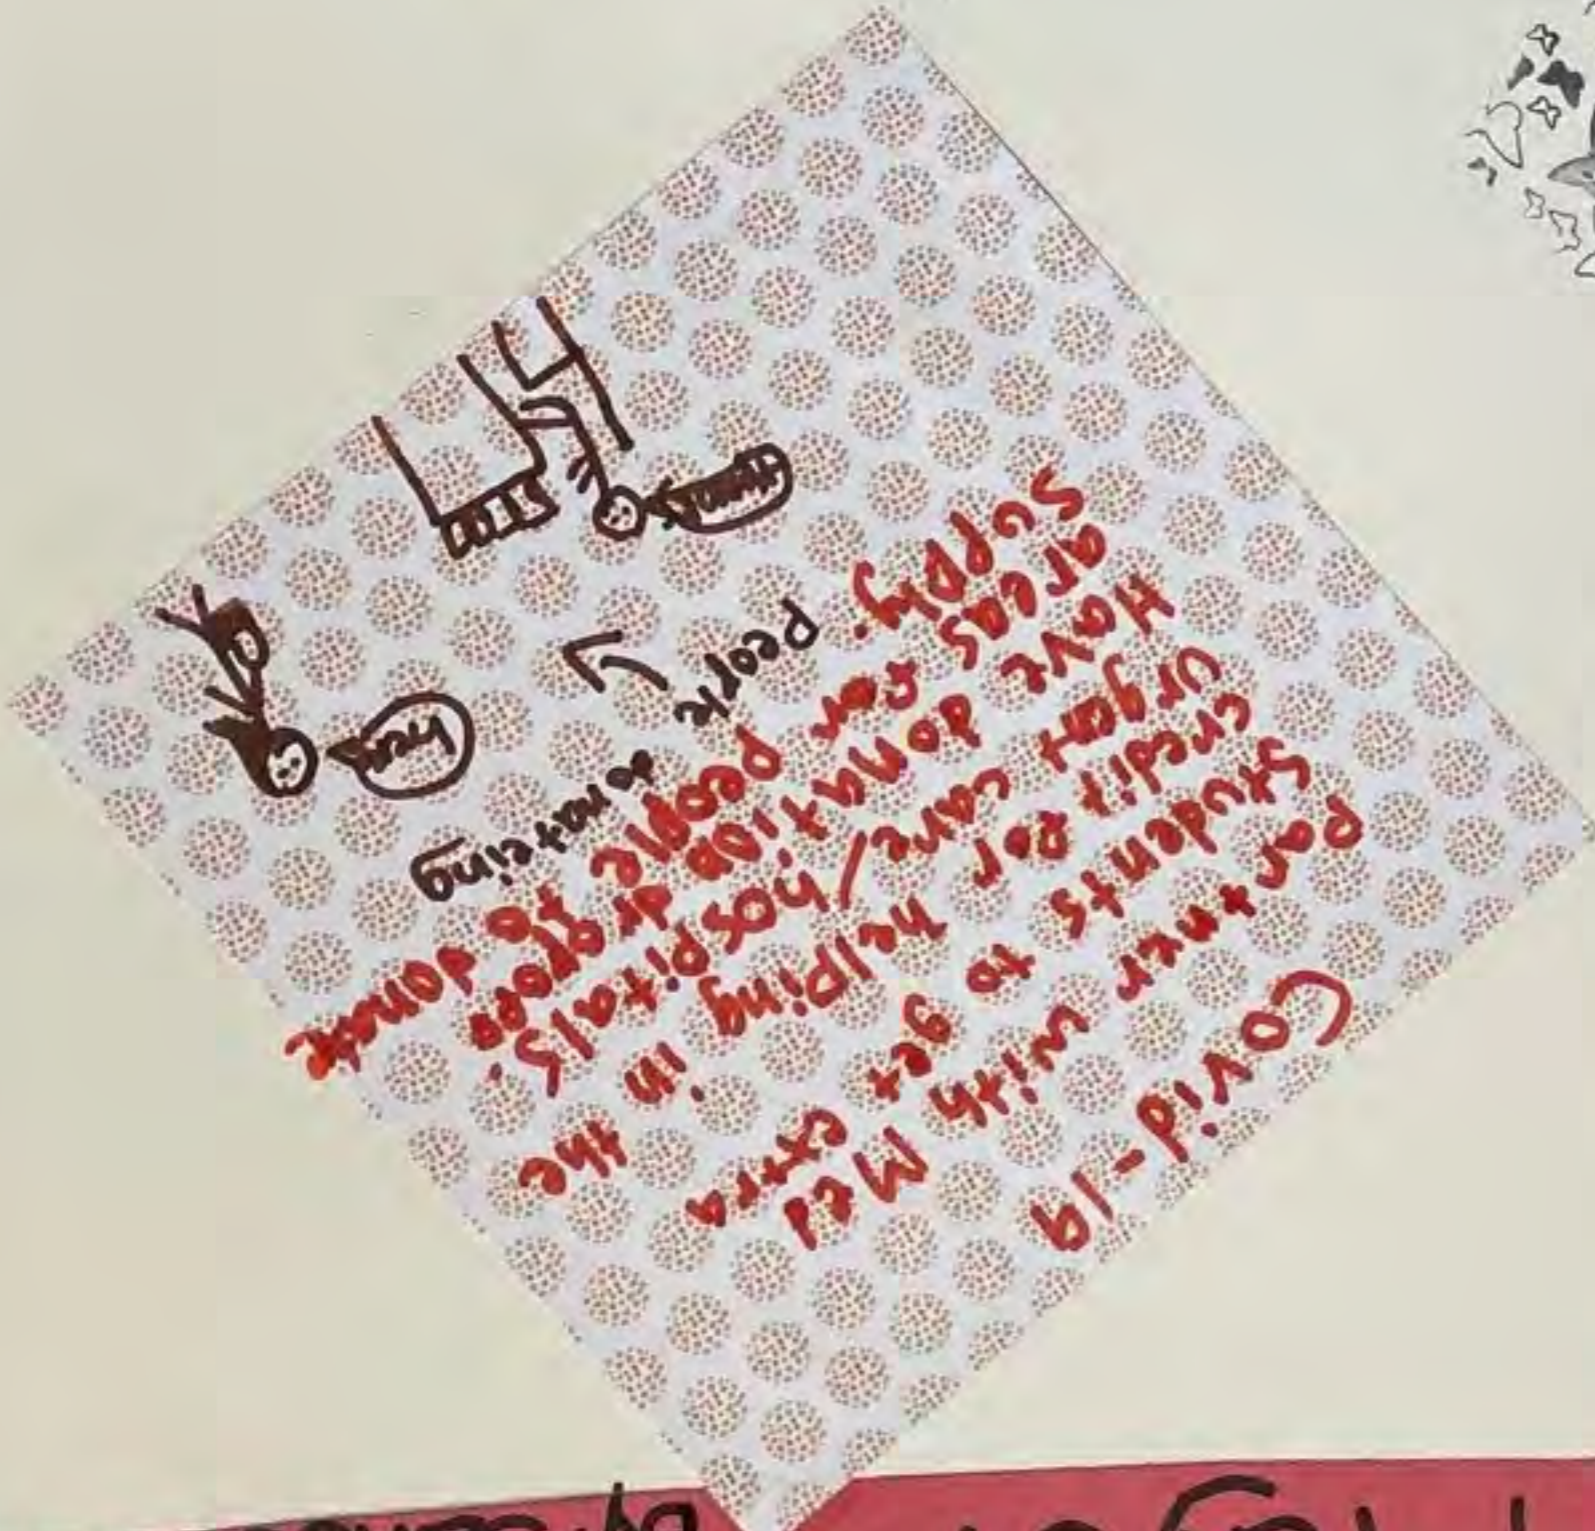 Covid-19
Partner with Med
Students to get extra
credit for helping in the
Urgent care/hospitals.
Have donation drop
areas for people to donate
Supply.
People donateing